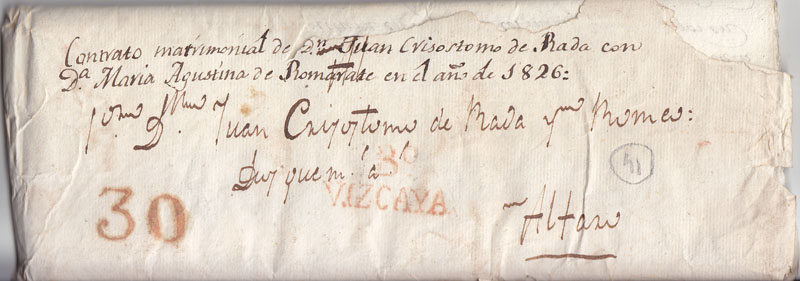 Contrato matrimonial de Dn. Juan Crisostomo de Rada con
Da. Maria Agustina de Romarate en el año de 1826=
Dn. Juan Crisostomo de Rada y Romeo:
Duq que m. a.
VIZCAYA
30
41
Alfaro